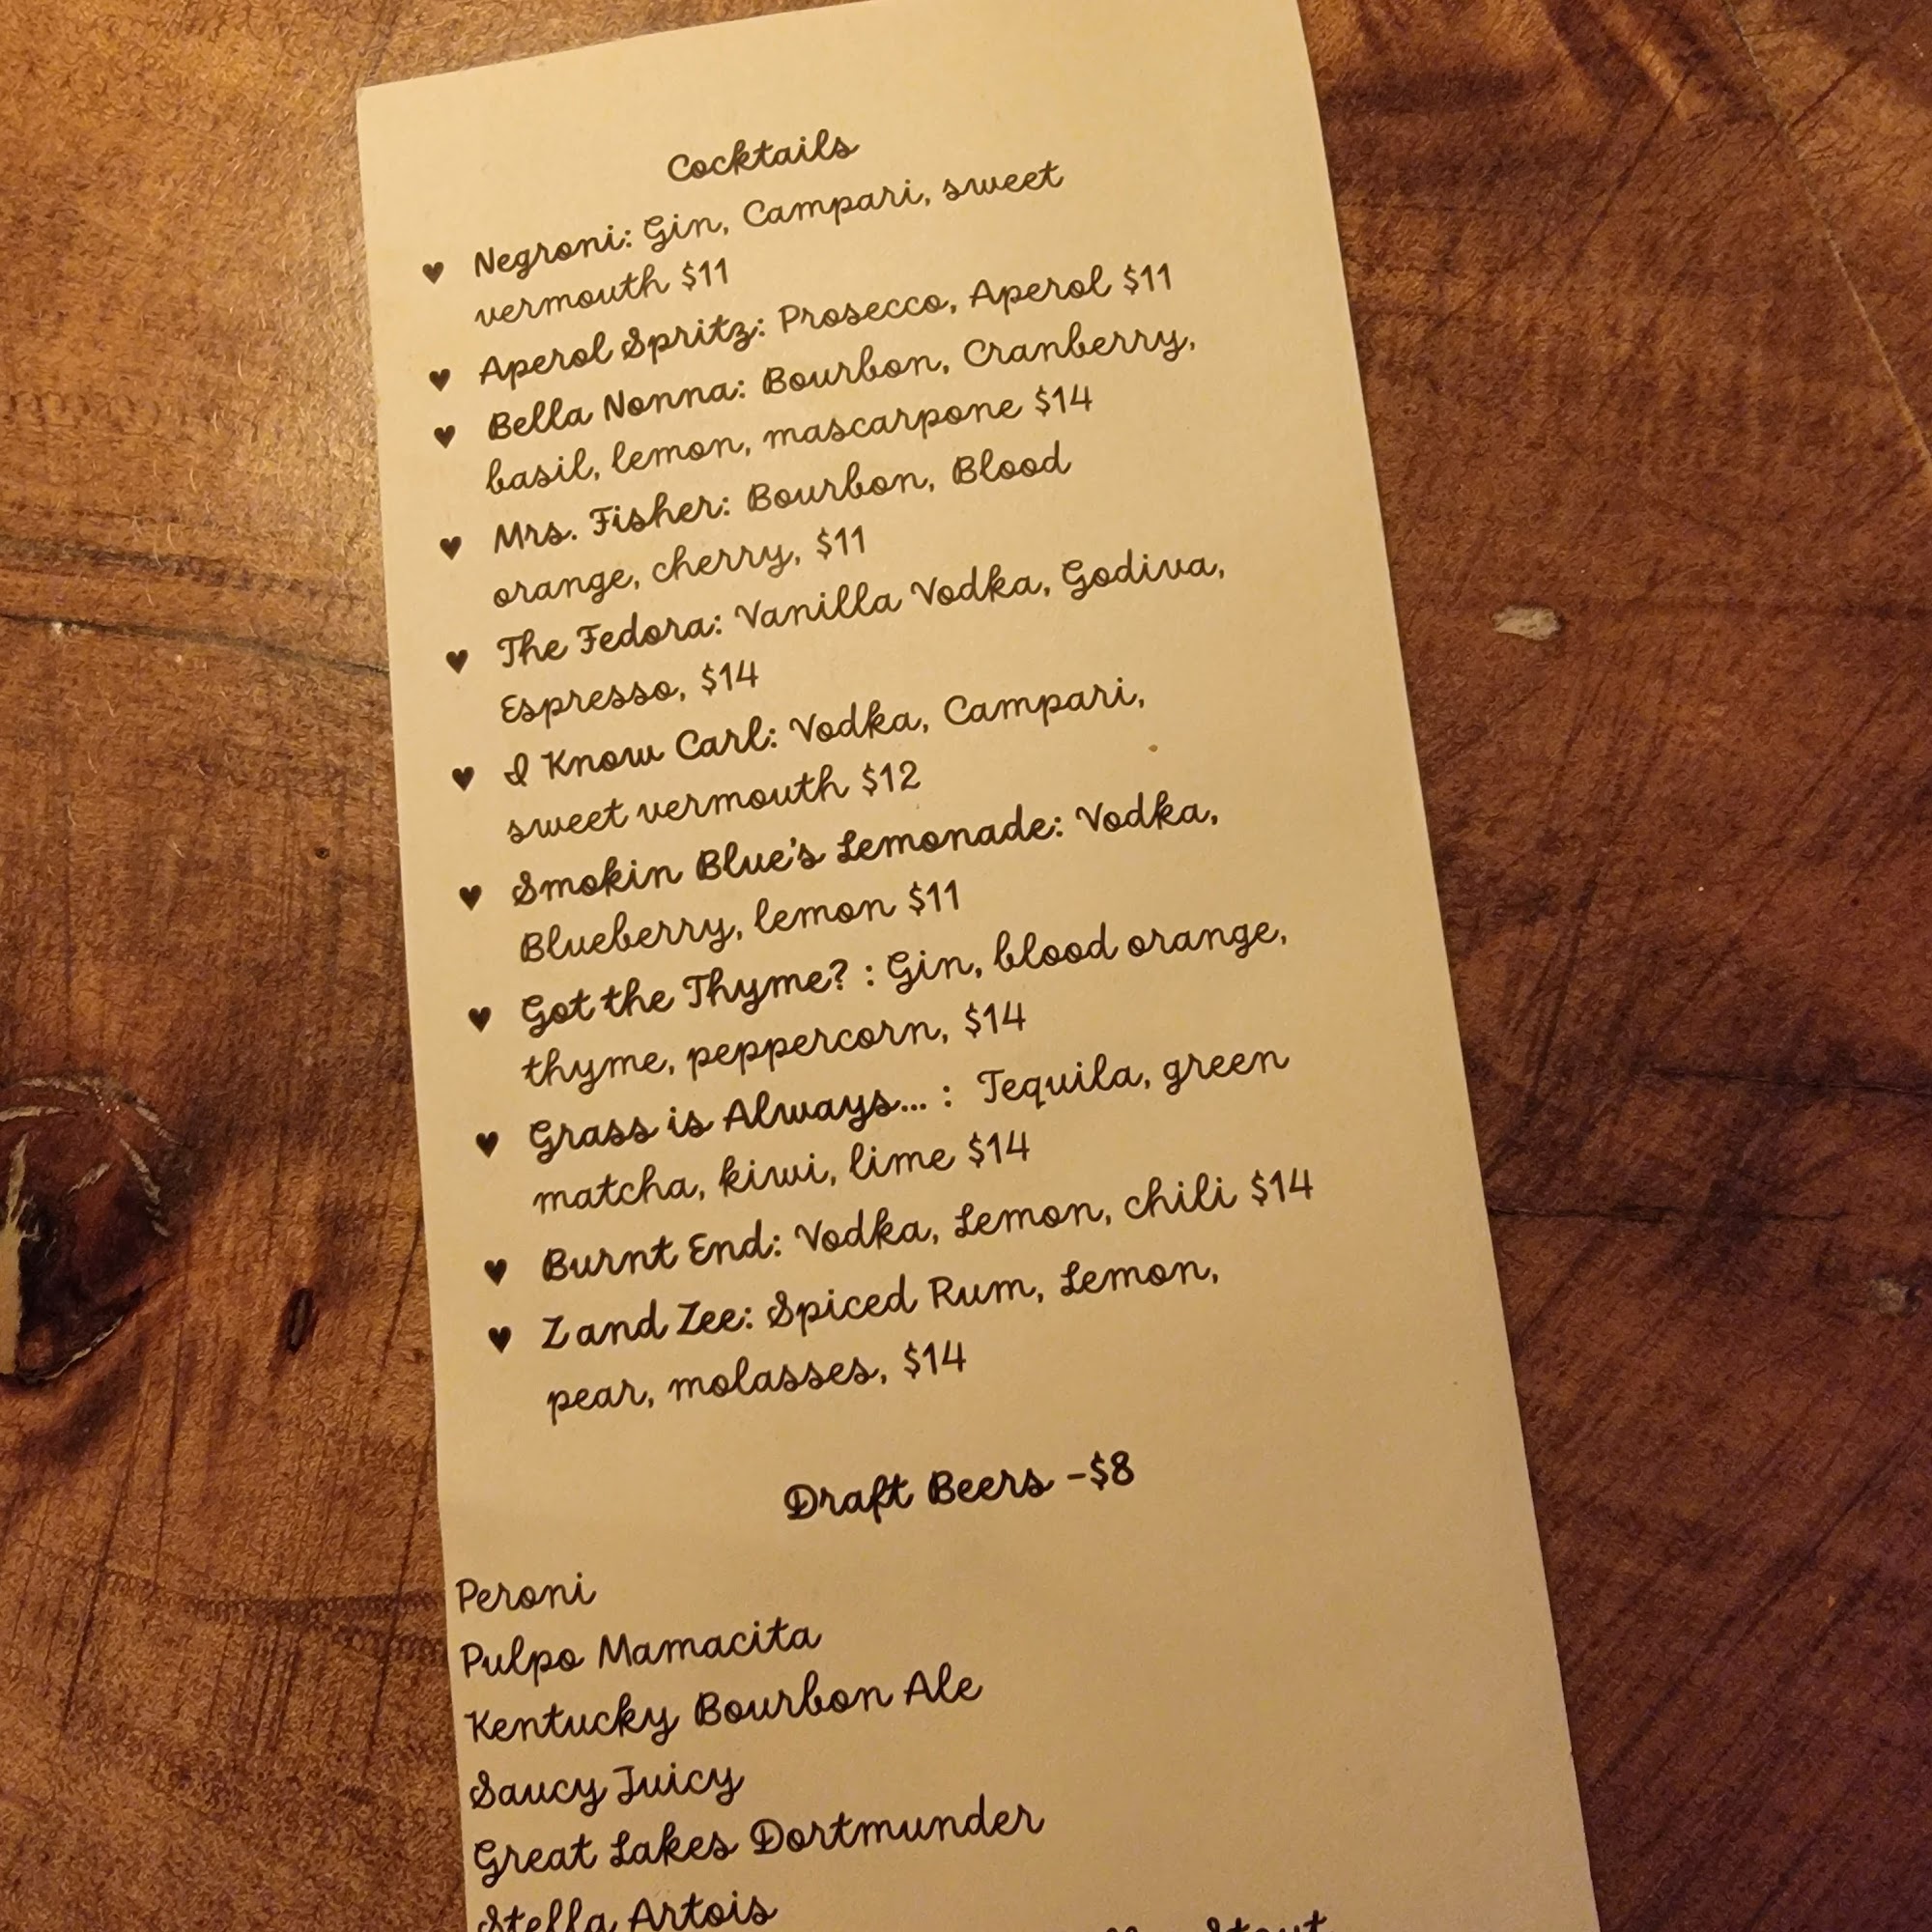 Cocktails
Negroni: Gin, Campari, sweet
vermouth $11
Aperol Spritz: Prosecco, Aperol $11
Bella Nonna: Bourbon, Cranberry,
basil, lemon, mascarpone $14
Mrs. Fisher: Bourbon, Blood
orange, cherry, $11
The Fedora: Vanilla Vodka, Godiva,
Espresso, $14
I Know Carl: Vodka, Campari,
sweet vermouth $12
Smokin Blue's Lemonade: Vodka,
Blueberry, lemon $11
Got the Thyme? : Gin, blood orange,
thyme, peppercorn, $14
Grass is Always... : Tequila, green
matcha, kiwi, lime $14
Burnt End: Vodka, Lemon, chili $14
Z and Zee: Spiced Rum, Lemon,
pear, molasses, $14
Draft Beers -$8
Peroni
Pulpo Mamacita
Kentucky Bourbon Ale
Saucy Juicy
Great Lakes Dortmunder
Stella Artois
Stout